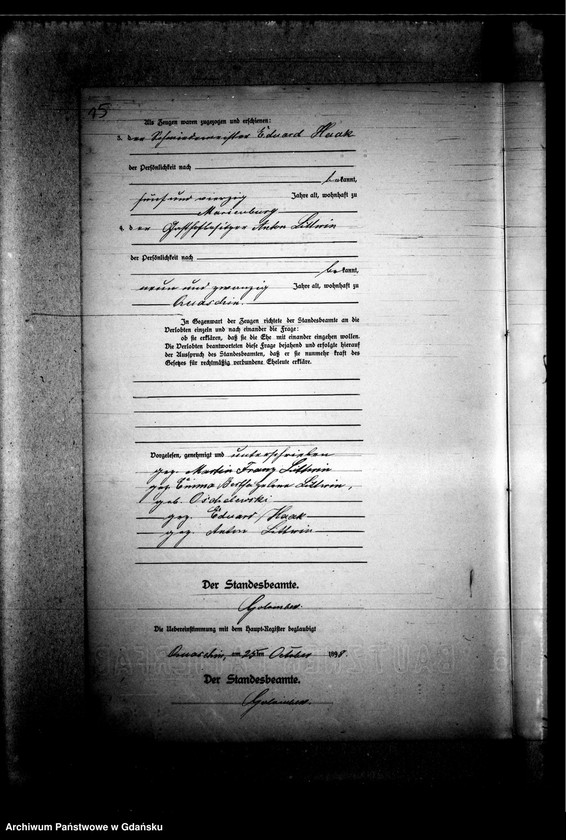 95
Als Zeugen waren zugezogen und erschienen:
3. der Schmiedemeister Eduard Haak
der Persönlichkeit nach
bekannt,
fünf und vierzig Jahre alt, wohnhaft zu
Marienburg
4. der Gasthofbesitzer Anton Littwin
der Persönlichkeit nach
bekannt,
neun und zwanzig Jahre alt, wohnhaft zu
Quaschin.
In Gegenwart der Zeugen richtete der Standesbeamte an die
Verlobten einzeln und nach einander die Frage:
ob sie erklären, daß sie die Ehe mit einander eingehen wollen.
Die Verlobten beantworteten diese Frage bejahend und erfolgte hierauf
der Ausspruch des Standesbeamten, daß er sie nunmehr kraft des
Gesetzes für rechtmäßig verbundene Eheleute erkläre.
Vorgelesen, genehmigt und unterschrieben
gez. Martin Franz Littwin
gez. Emma Bertha Helene Littwin,
geb.
gez. Eduard Haak
gez. Anton Littwin
Der Standesbeamte.
Die Uebereinstimmung mit dem Haupt-Register beglaubigt
Quaschin, am 25ten October 1898.
Der Standesbeamte.
Archiwum Państwowe w Gdańsku